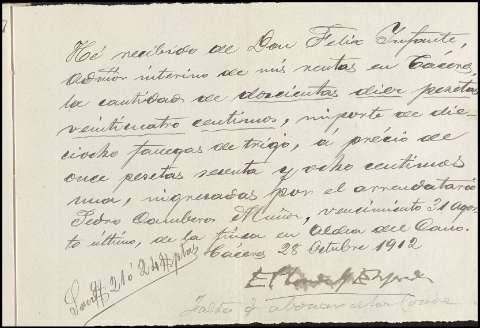 He recibido de Don Felix Infante,
admor interino de mis rentas en Cáceres,
la cantidad de doscientas diez pesetas
veinticuatro centimos, importe de die-
ciocho fanegas de trigo, á précio de
once pesetas sesenta y ocho centimos
una, ingresadas por el arrendatario
Pedro Cambero Muñoz, vencimiento 31 agos-
to último, de la finca en aldea del Cano.
Cáceres 28 Octubre 1912
Son # 210 24 # ptas
El Conde
Falta abonar Conde